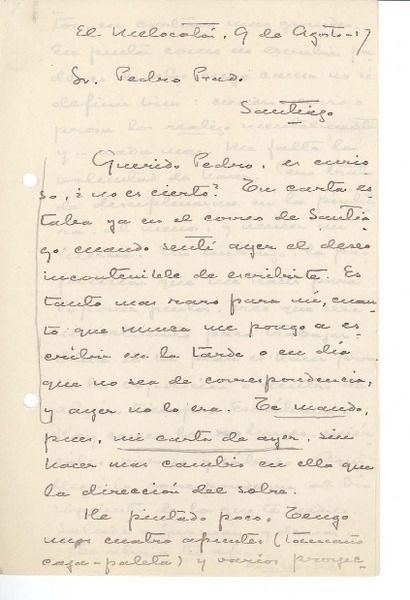 El Melocotón, 9 de Agosto-17
Sr. Pedro Prado.
Santiago
Querido Pedro, es curio-
so, ¿no es cierto? Tu carta es-
taba ya en el correo de Santia-
go cuando sentí ayer el deseo
incontenible de escribirte. Es
tanto mas raro para mí, cuan-
to que nunca me pongo a es-
cribir en la tarde o en día
que no sea de correspondencia,
y ayer no lo era. Te mando,
pues, mi carta de ayer, sin
hacer mas cambio en ella que
la dirección del sobre.
He pintado poco. Tengo
unos cuatro apuntes (tamaño
caja-paleta) y varios proyec-